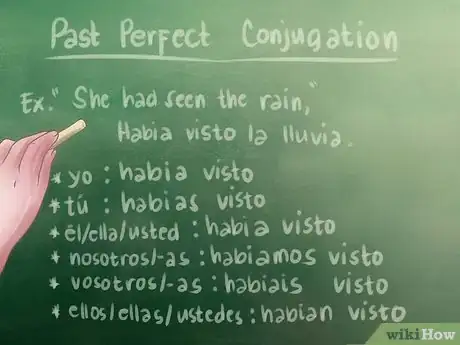 Past Perfect Conjugation
Ex." She had seen the rain,"
Habia visto la lluvia.
* yo : habia visto
* tú : habias visto
* él/ella/usted : habia visto
* nosotros/-as : habiamos visto
* vosotros/-as : habiais visto
* ellos/ellas/ustedes : habian visto
wikiHow